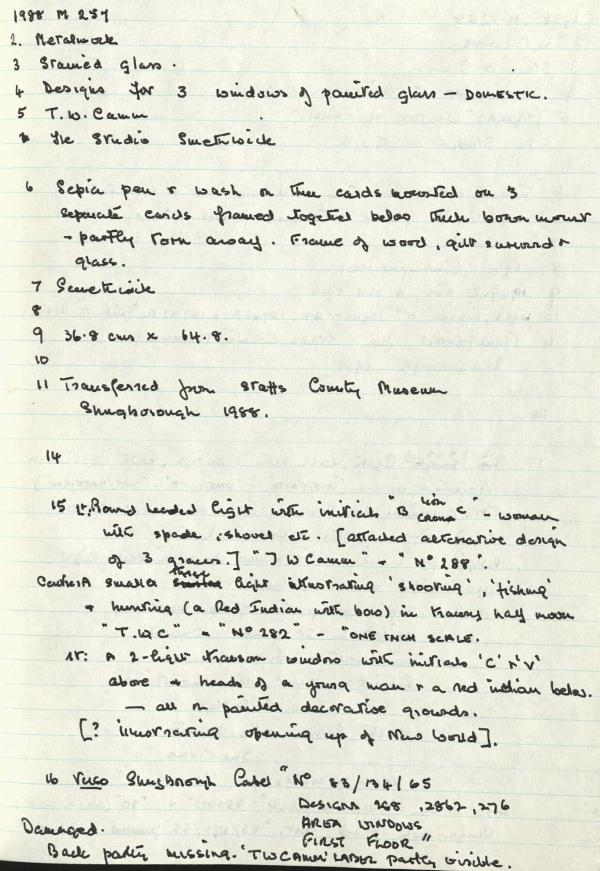 1988 M 257
2. Metalwork
3 Stained glass.
4 Designs for 3 windows of painted glass – DOMESTIC.
5 T.W. Camm
The Studio Smethwick
6 Sepia pen & wash on three cards mounted on 3
separate cards framed together below thick brown mount
– partly torn away. Frame of wood, gilt surround &
glass.
7 Smethwick
8
9 36.8 cms x 64.8.
10
11 Transferred from Staffs County Museum
Shugborough 1988.
14
15 Lt, Round headed light with initials "B lion crown C" – woman
with spade, shovel etc. [attached alternative design
of 3 graces.] "J W Camm" – "No 288".
Centre: A smaller three light illustrating 'shooting', 'fishing'
& hunting (a Red Indian with bow) in tracery half moon
"T.W.C" – "No 282" – "ONE INCH SCALE.
rt: A 2-light transom window with initials 'C' & 'V'
above & heads of a young man & a red indian below.
— all on painted decorative grounds.
[? illustrating opening up of New World].
16 Verso Shugborough Label "No 83/134/65
DESIGNS 288, 2862, 276
AREA WINDOWS
FIRST FLOOR"
Damaged.
Back partly missing. 'TWCAMM' LABEL partly visible.